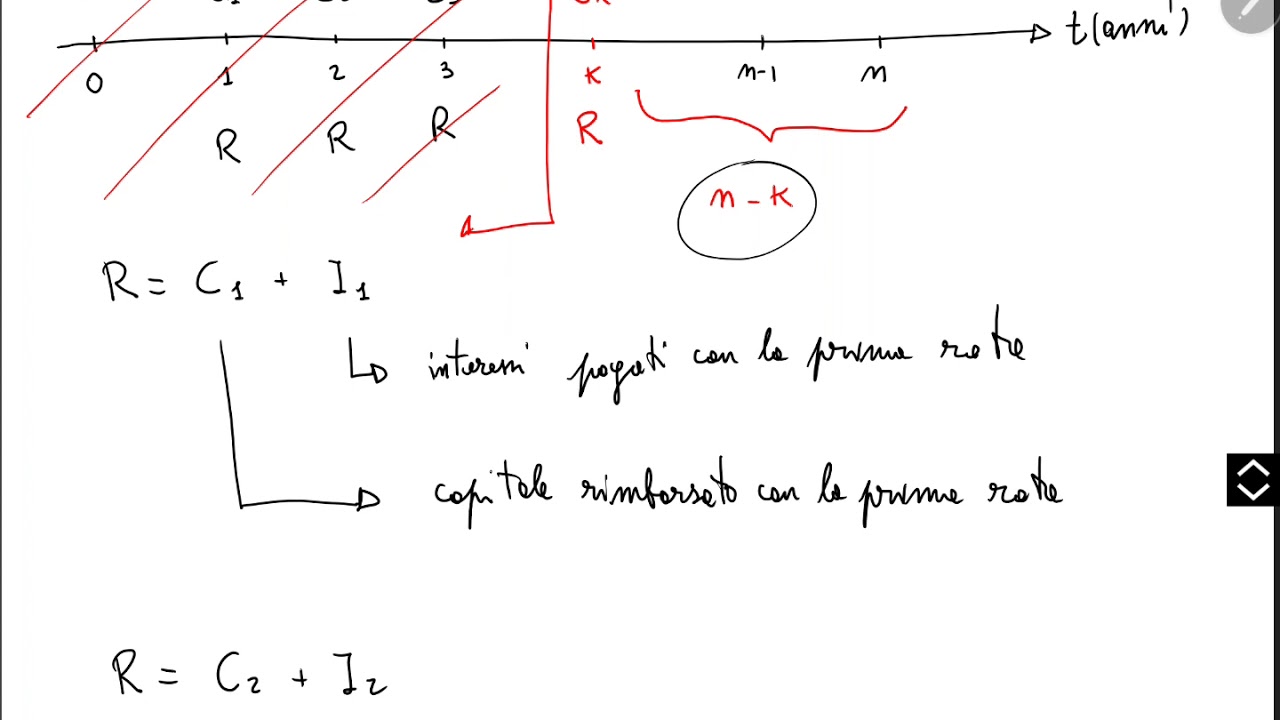 t(anni)
0 1 2 3 k n-1 n
R R R R
n - k
R = C1 + I1
interessi pagati con la prima rata
capitale rimborsato con la prima rata
R = C2 + I2